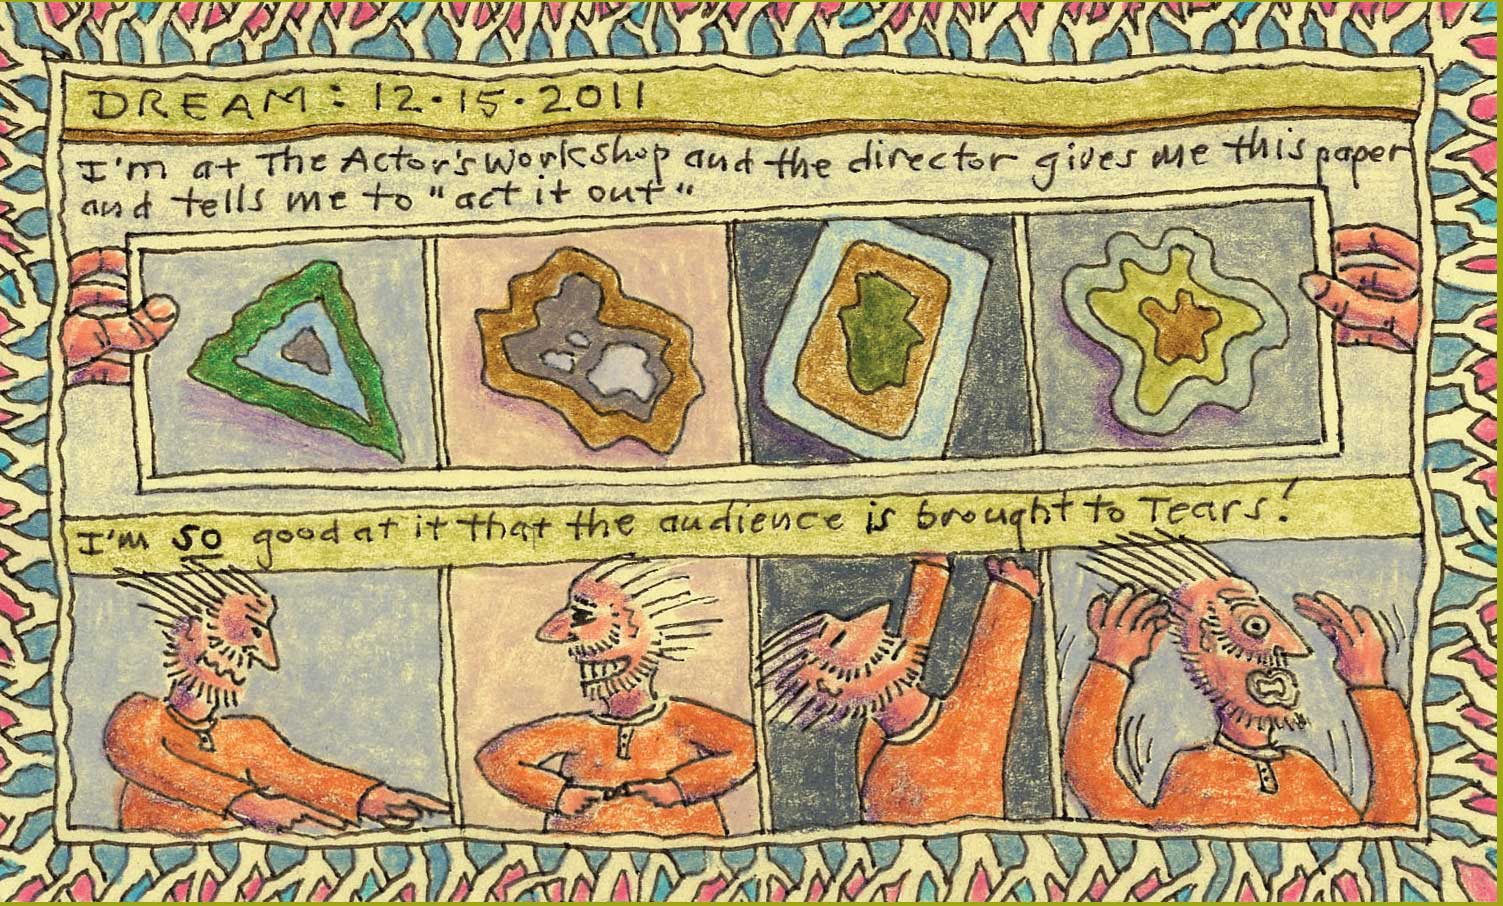 DREAM: 12·15·2011
I'm at The Actor's Workshop and the director gives me this paper
and tells me to "act it out"
I'm SO good at it that the audience is brought to Tears!